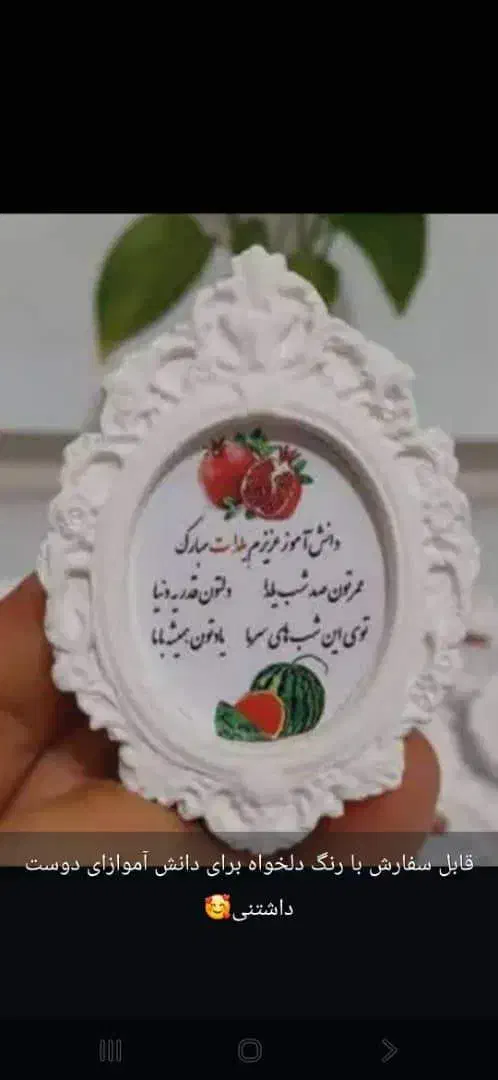 دانش آموز عزیزم یلدات مبارک
عمرتون صد شب یلدا دلتون قدر یه دنیا
توی این شب های سرما یادتون همیشه باما
قابل سفارش با رنگ دلخواه برای دانش آموازای دوست
داشتنی🥰